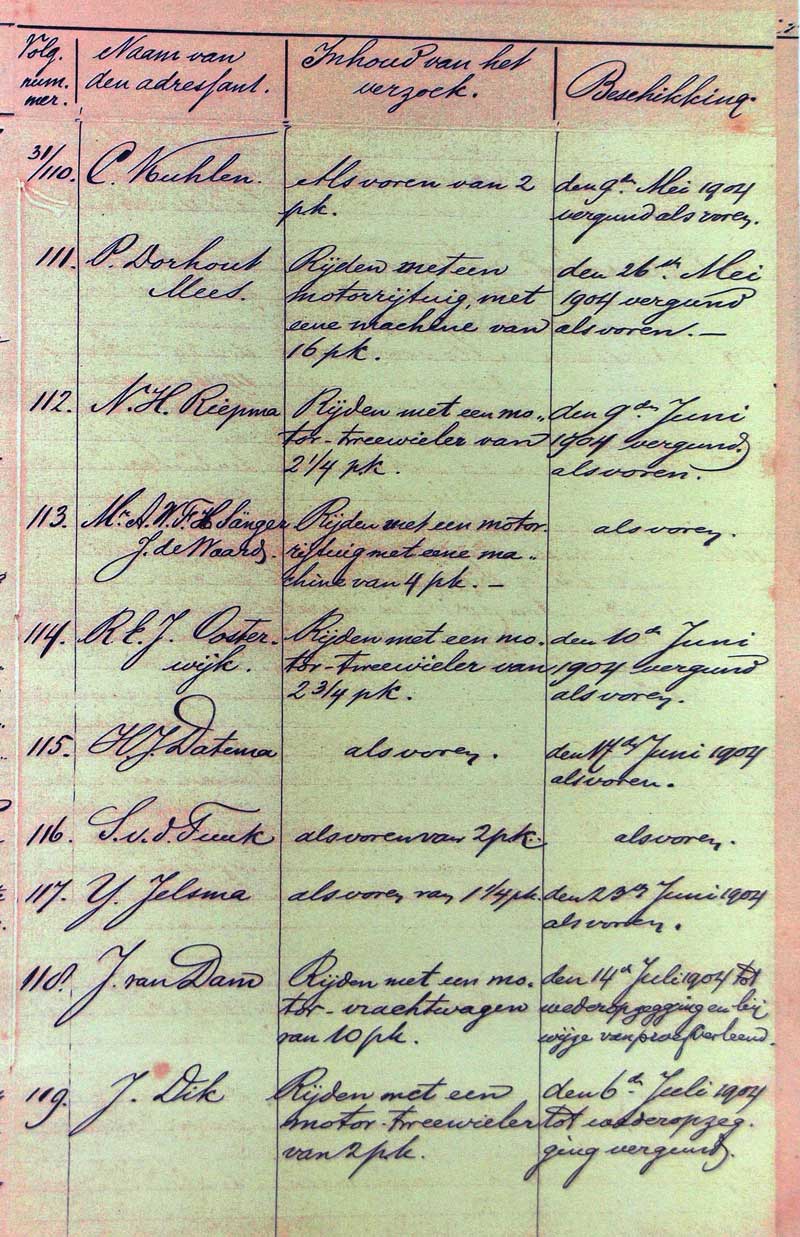 Volg. num- mer.
Naam van den adressant.
Inhoud van het verzoek.
Beschikking.
31/110. C. Kuhlen. Als voren van 2 den 9den Mei 1904
pk. vergund als voren.
111. P. Dorhout Rijden met een den 26sten Mei
Mees. motorrijtuig, met 1904 vergund
eene machine van als voren. —
16 pk.
112. N. H. Riepma Rijden met een mo- den 9den Juni
tor-tweewieler van 1904 vergund
2 1/4 pk. als voren.
113. Mr. A. W. F. H. Sänger Rijden met een motor- als voren.
J. de Waard. rijtuig met eene ma-
chine van 4 pk. —
114. R. E. J. Ooster- Rijden met een mo- den 10den Juni
wijk. tor-tweewieler van 1904 vergund
2 3/4 pk. als voren.
115. H. J. Datema als voren. den 17den Juni 1904
als voren.
116. S. v. d. Tuuk als voren van 2 pk. als voren.
117. Y. Jelsma als voren van 1 1/4 pk. den 23sten Juni 1904
als voren.
118. J. van Dam Rijden met een mo- den 14den Juli 1904 tot
tor-vrachtwagen wederopzegging en bij
van 10 pk. wijze van proef verleend.
119. J. Dik Rijden met een den 6den Juli 1904
motor-tweewieler tot wederopzeg-
van 2 pk. ging vergund.